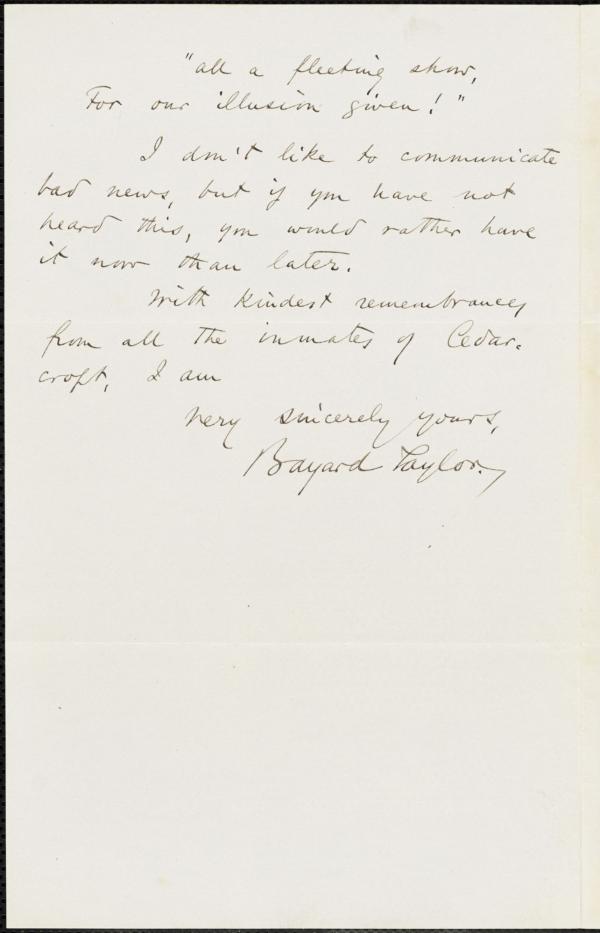 "all a fleeting show,
For our illusion given!"
I don't like to communicate
bad news, but if you have not
heard this, you would rather have
it now than later.
With kindest remembrances
from all the inmates of Cedar-
croft, I am
Very sincerely yours,
Bayard Taylor.